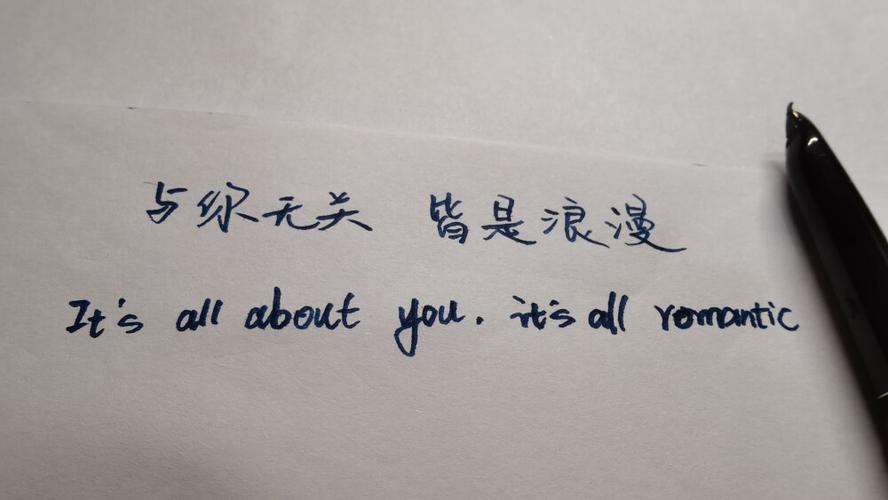 与你无关 皆是浪漫
It's all about you. it's all romantic